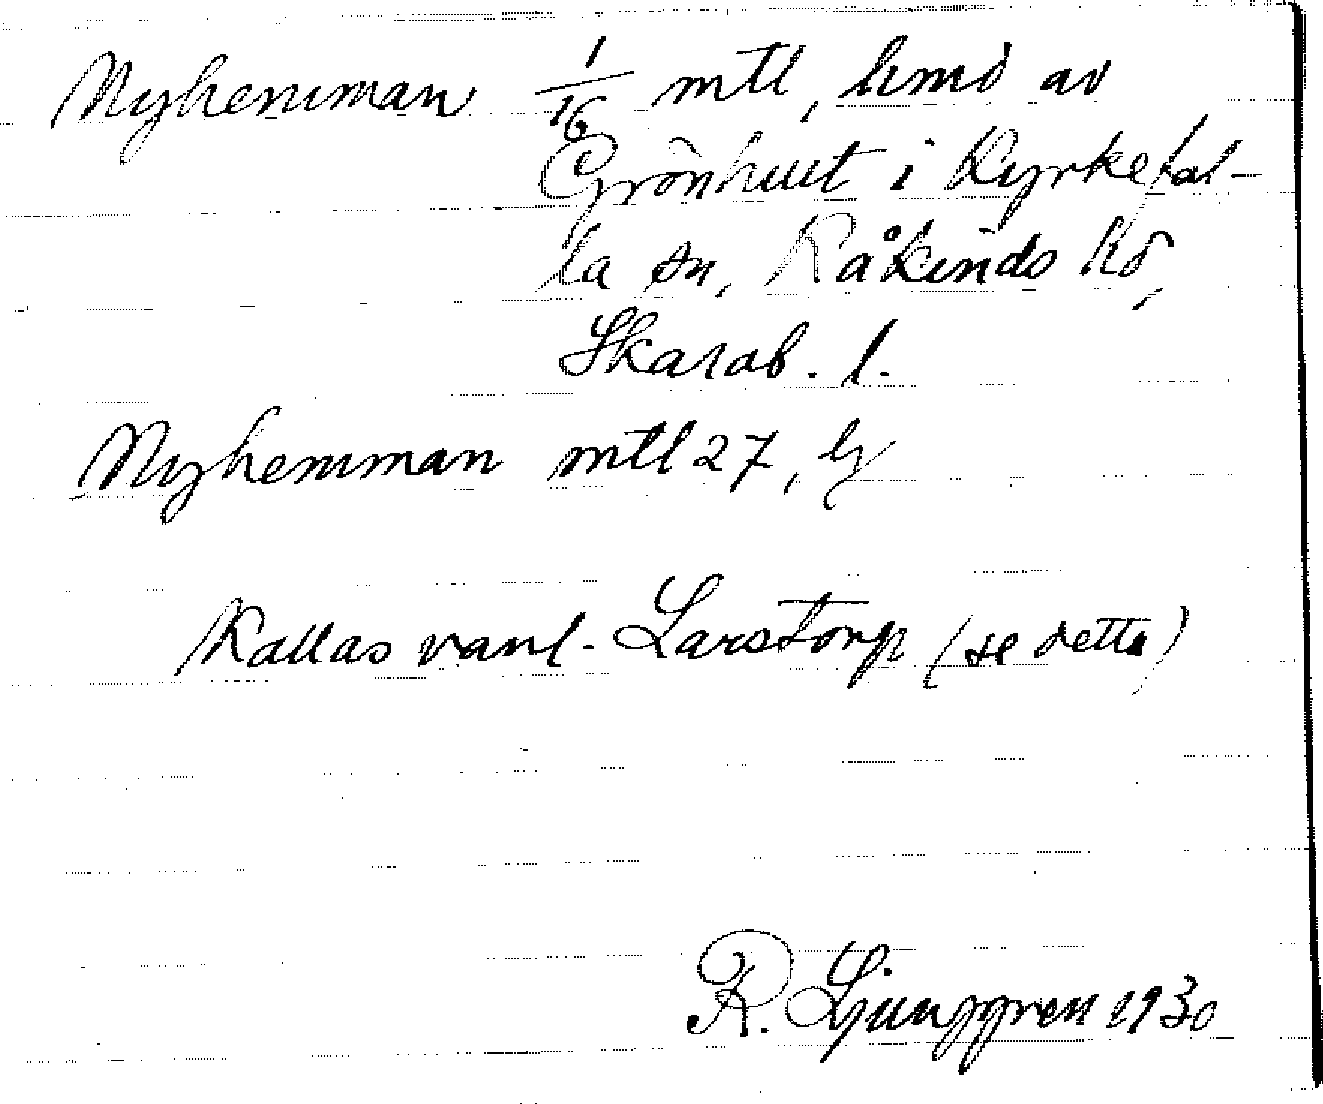 Nyhemman 1/16 mtl, hmd av
Grönhult i Kyrkefal-
la sn, Kåkinds hd,
Skarab. l.
Nyhemman mtl 27, lj
Kallas vanl. Larstorp (se detta)
R. Ljunggren 1930